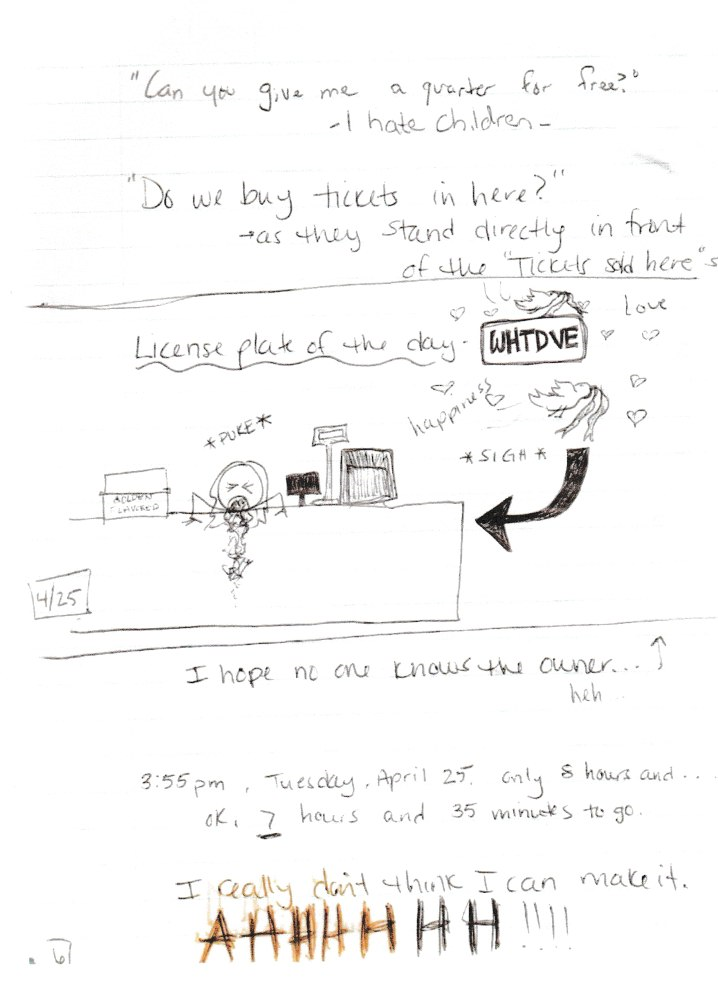 "Can you give me a quarter for free?"
- I hate children -
"Do we buy tickets in here?"
→as they stand directly in front
of the "Tickets sold here" s
Love
License plate of the day - WHTDVE
happiness
*PUKE*
*SIGH*
GOLDEN
FLAVORED
4/25
I hope no one knows the owner...
heh
3:55pm, Tuesday, April 25. only 8 hours and...
ok, 7 hours and 35 minutes to go.
I really don't think I can make it.
AHHHHHH!!!!
6